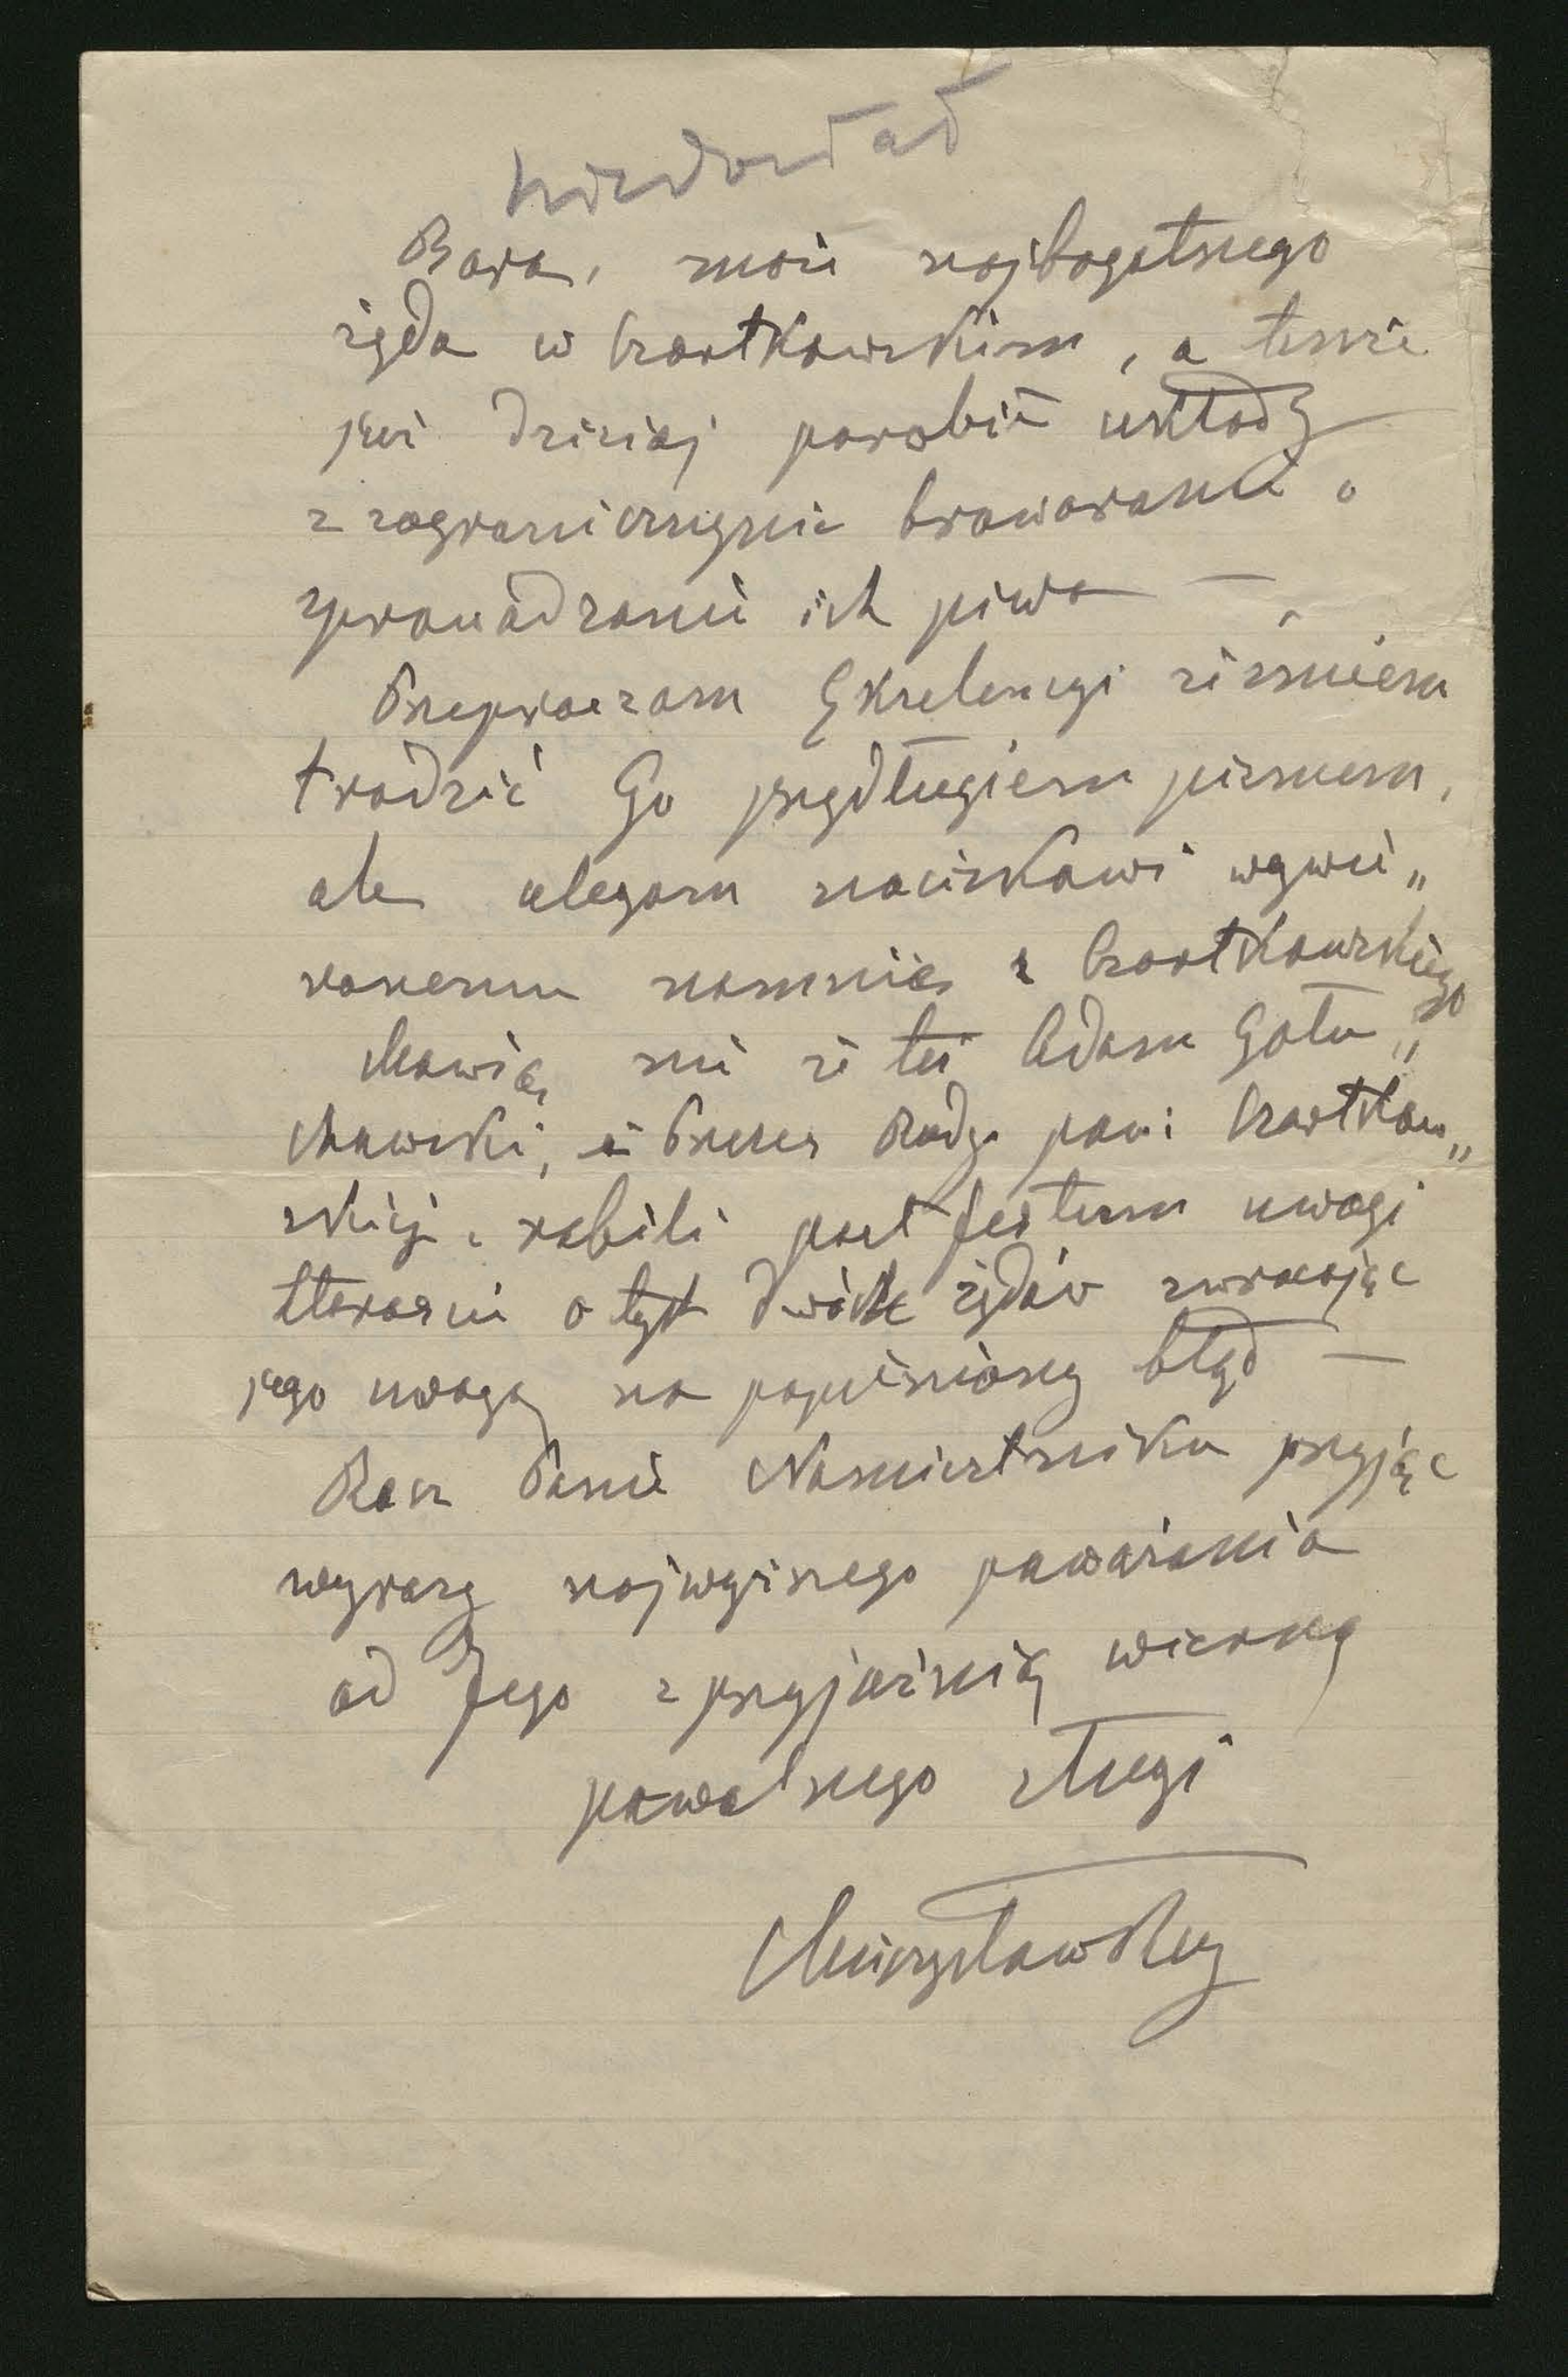 Bara, moie najbogatszego
żyda w Czortkowskim, a tenże
już dzisiaj porobił układy
z zagranicznymi browarami o
sprowadzanie ich piwa —
Przepraszam Ekscelencyi że śmiem
trudzić Go przydługiem pismem,
ale ulegam naciskowi wywie„
ranemu namnie z Czortkowskiego
Mówią mi że też Adam Gołu„
chowski, i Prezes Rady pow: Czortkow„
skiej, robili post festum uwagi
starościе o tych dwóch żydów zwracając
jego uwagę na popełniony błąd —
Racz Panie Namiestniku przyjąć
wyrazy najwyższego poważania
od Jego z przyjaźnią wierną
powolnego sługi
Mieczysław Rey